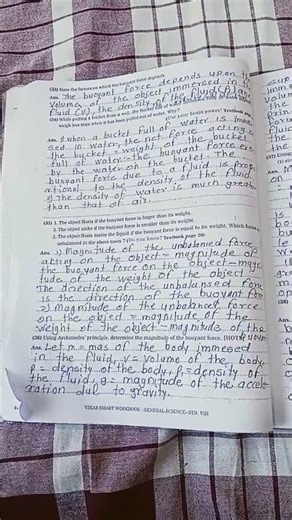 (32) State the factors on which the buoyant force depends.
Ans. The buoyant force depends upon the
volume of the object immersed in the
fluid (v), the density of the fluid
(33) While pulling a bucket from a well, the bucket
weigh less than when it has been pulled out of water. Why?
(Use your brain power! Textbook
Ans. 1) when a bucket full of water is immer-
sed in water, the net force acting o
the bucket = weight of the bucket
full of water - the buoyant force exer
by the water on the bucket. The
buoyant force due to a fluid is prop
rtional to the density of the fluid.
2) The density of water is much great
than that of air.
(35) 1. The object floats if the buoyant force is larger than its weight.
2. The object sinks if the buoyant force is smaller than its weight.
3. The object floats inside the liquid if the buoyant force is equal to its weight. Which forces
unbalanced in the above cases? (Use your brain power! Textbook page 20)
Ans. 1) Magnitude of the unbalanced force
acting on the object = magnitude of
the buoyant force on the object - magni
tude of the weight of the object
The direction of the unbalanced force
is the direction of the buoyant for
2) Magnitude of the unbalanced force
on the object = magnitude of the
weight of the object - magnitude of the
(36) Using Archimedes' principle, determine the magnitude of the buoyant force. (HOTS)
Ans. Let m = mas of the body immesed
in the fluid, v = volume of the body,
ρ = density of the body, ρ₁ = density of
the fluid, g = magnitude of the accele
ration due to gravity.
VIKAS SMART WORKBOOK : GENERAL SCIENCE - STD. VIII